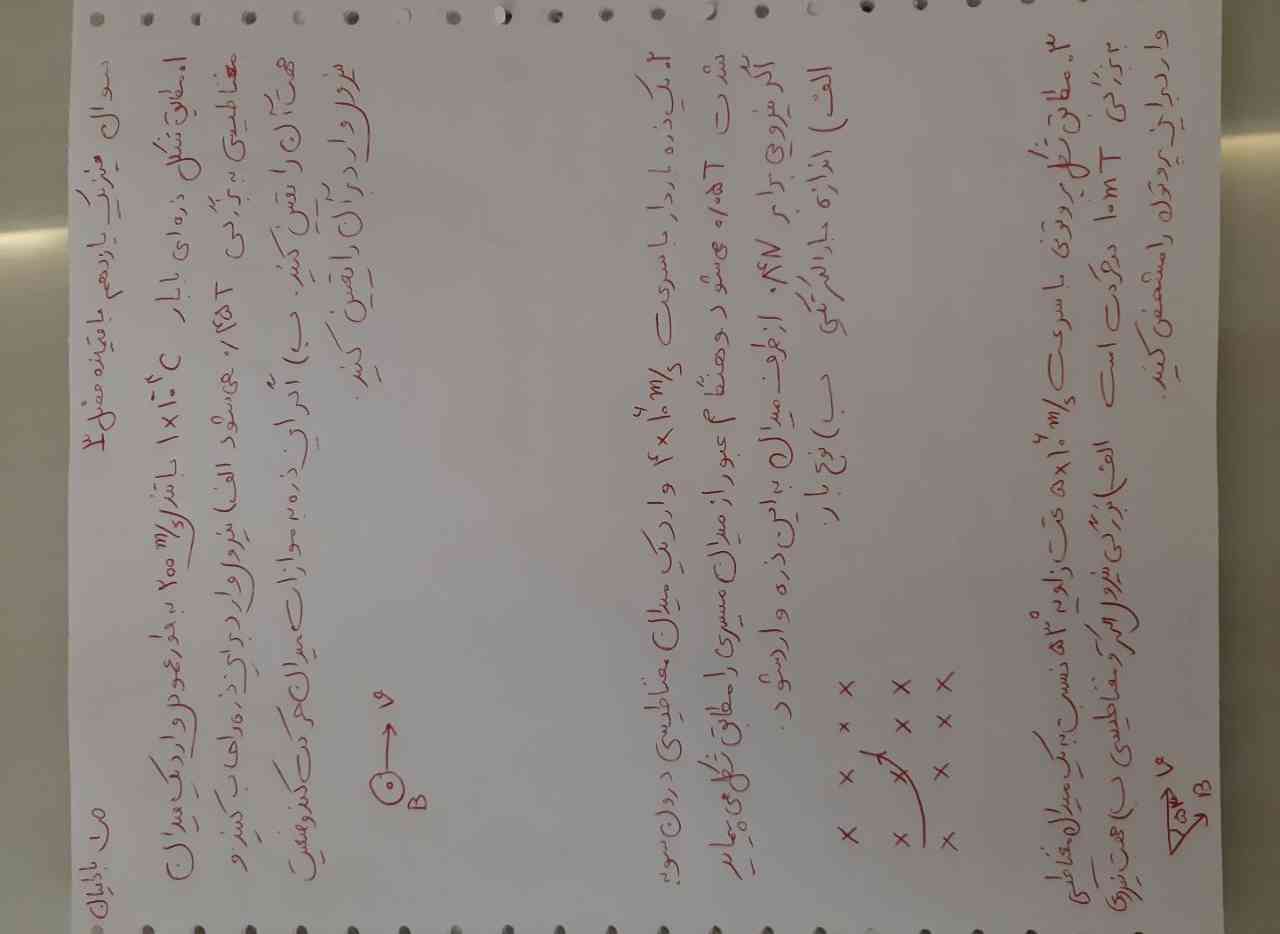 سوال فیزیک یازدهم
۱. مطابق شکل ذره‌ای با بار ۱×۱۰⁻⁴ C با تندی ۲۰۰ m/s به طور عمود وارد یک میدان
مغناطیسی به بزرگی ۰/۴۵T می‌شود الف) نیروی وارد بر این ذره را حساب کنید و
جهت آن را نقش کنید. ب) اگر این ذره به موازات میدان حرکت کند وضعیت
نیروی وارد بر آن را تعیین کنید.
B
v
۲. یک ذره باردار با سرعت ۴×۱۰⁶ m/s وارد یک میدان مغناطیسی درون سو به
شدت ۰/۰۵T می‌شود و هنگام عبور از میدان مسیری را مطابق شکل می‌پیماید
اگر نیرویی برابر از طرف میدان به این ذره وارد شود.
الف) اندازه بار الکتریکی ب) نوع بار.
× × × ×
× × × ×
× × × ×
۳. مطابق شکل پروتونی با سرعت ۵×۱۰⁶ m/s تحت زاویه ۵۳° نسبت به یک میدان مغناطیسی
به بزرگی ۱۰mT در حرکت است الف) بزرگی نیروی مغناطیسی ب) جهت نیروی
وارد بر این پروتون را مشخص کنید.
۵۳
v
B